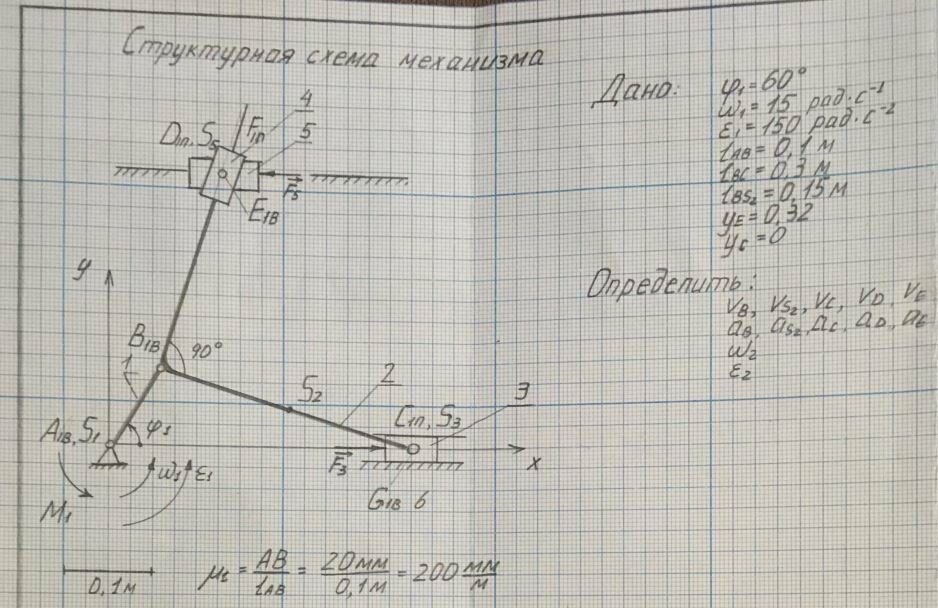 Структурная схема механизма
Дано:
φ₁ = 60°
ω₁ = 15 рад·с⁻¹
ε₁ = 150 рад·с⁻²
lAB = 0,1 м
lBC = 0,3 м
lBS₂ = 0,15 м
yE = 0,32
yC = 0
Определить:
VB, VS₂, VC, VD, VE
aB, aS₂, aC, aD, aE
ω₂
ε₂
4
F1п
5
D1п, S5
F5
E1В
y
B1В
90°
1
S2
2
C1п, S3
3
A1В, S1
φ1
x
F3
ω1
ε1
G1В 6
M1
0,1м
μl = AB/lAB = 20мм/0,1м = 200 мм/м